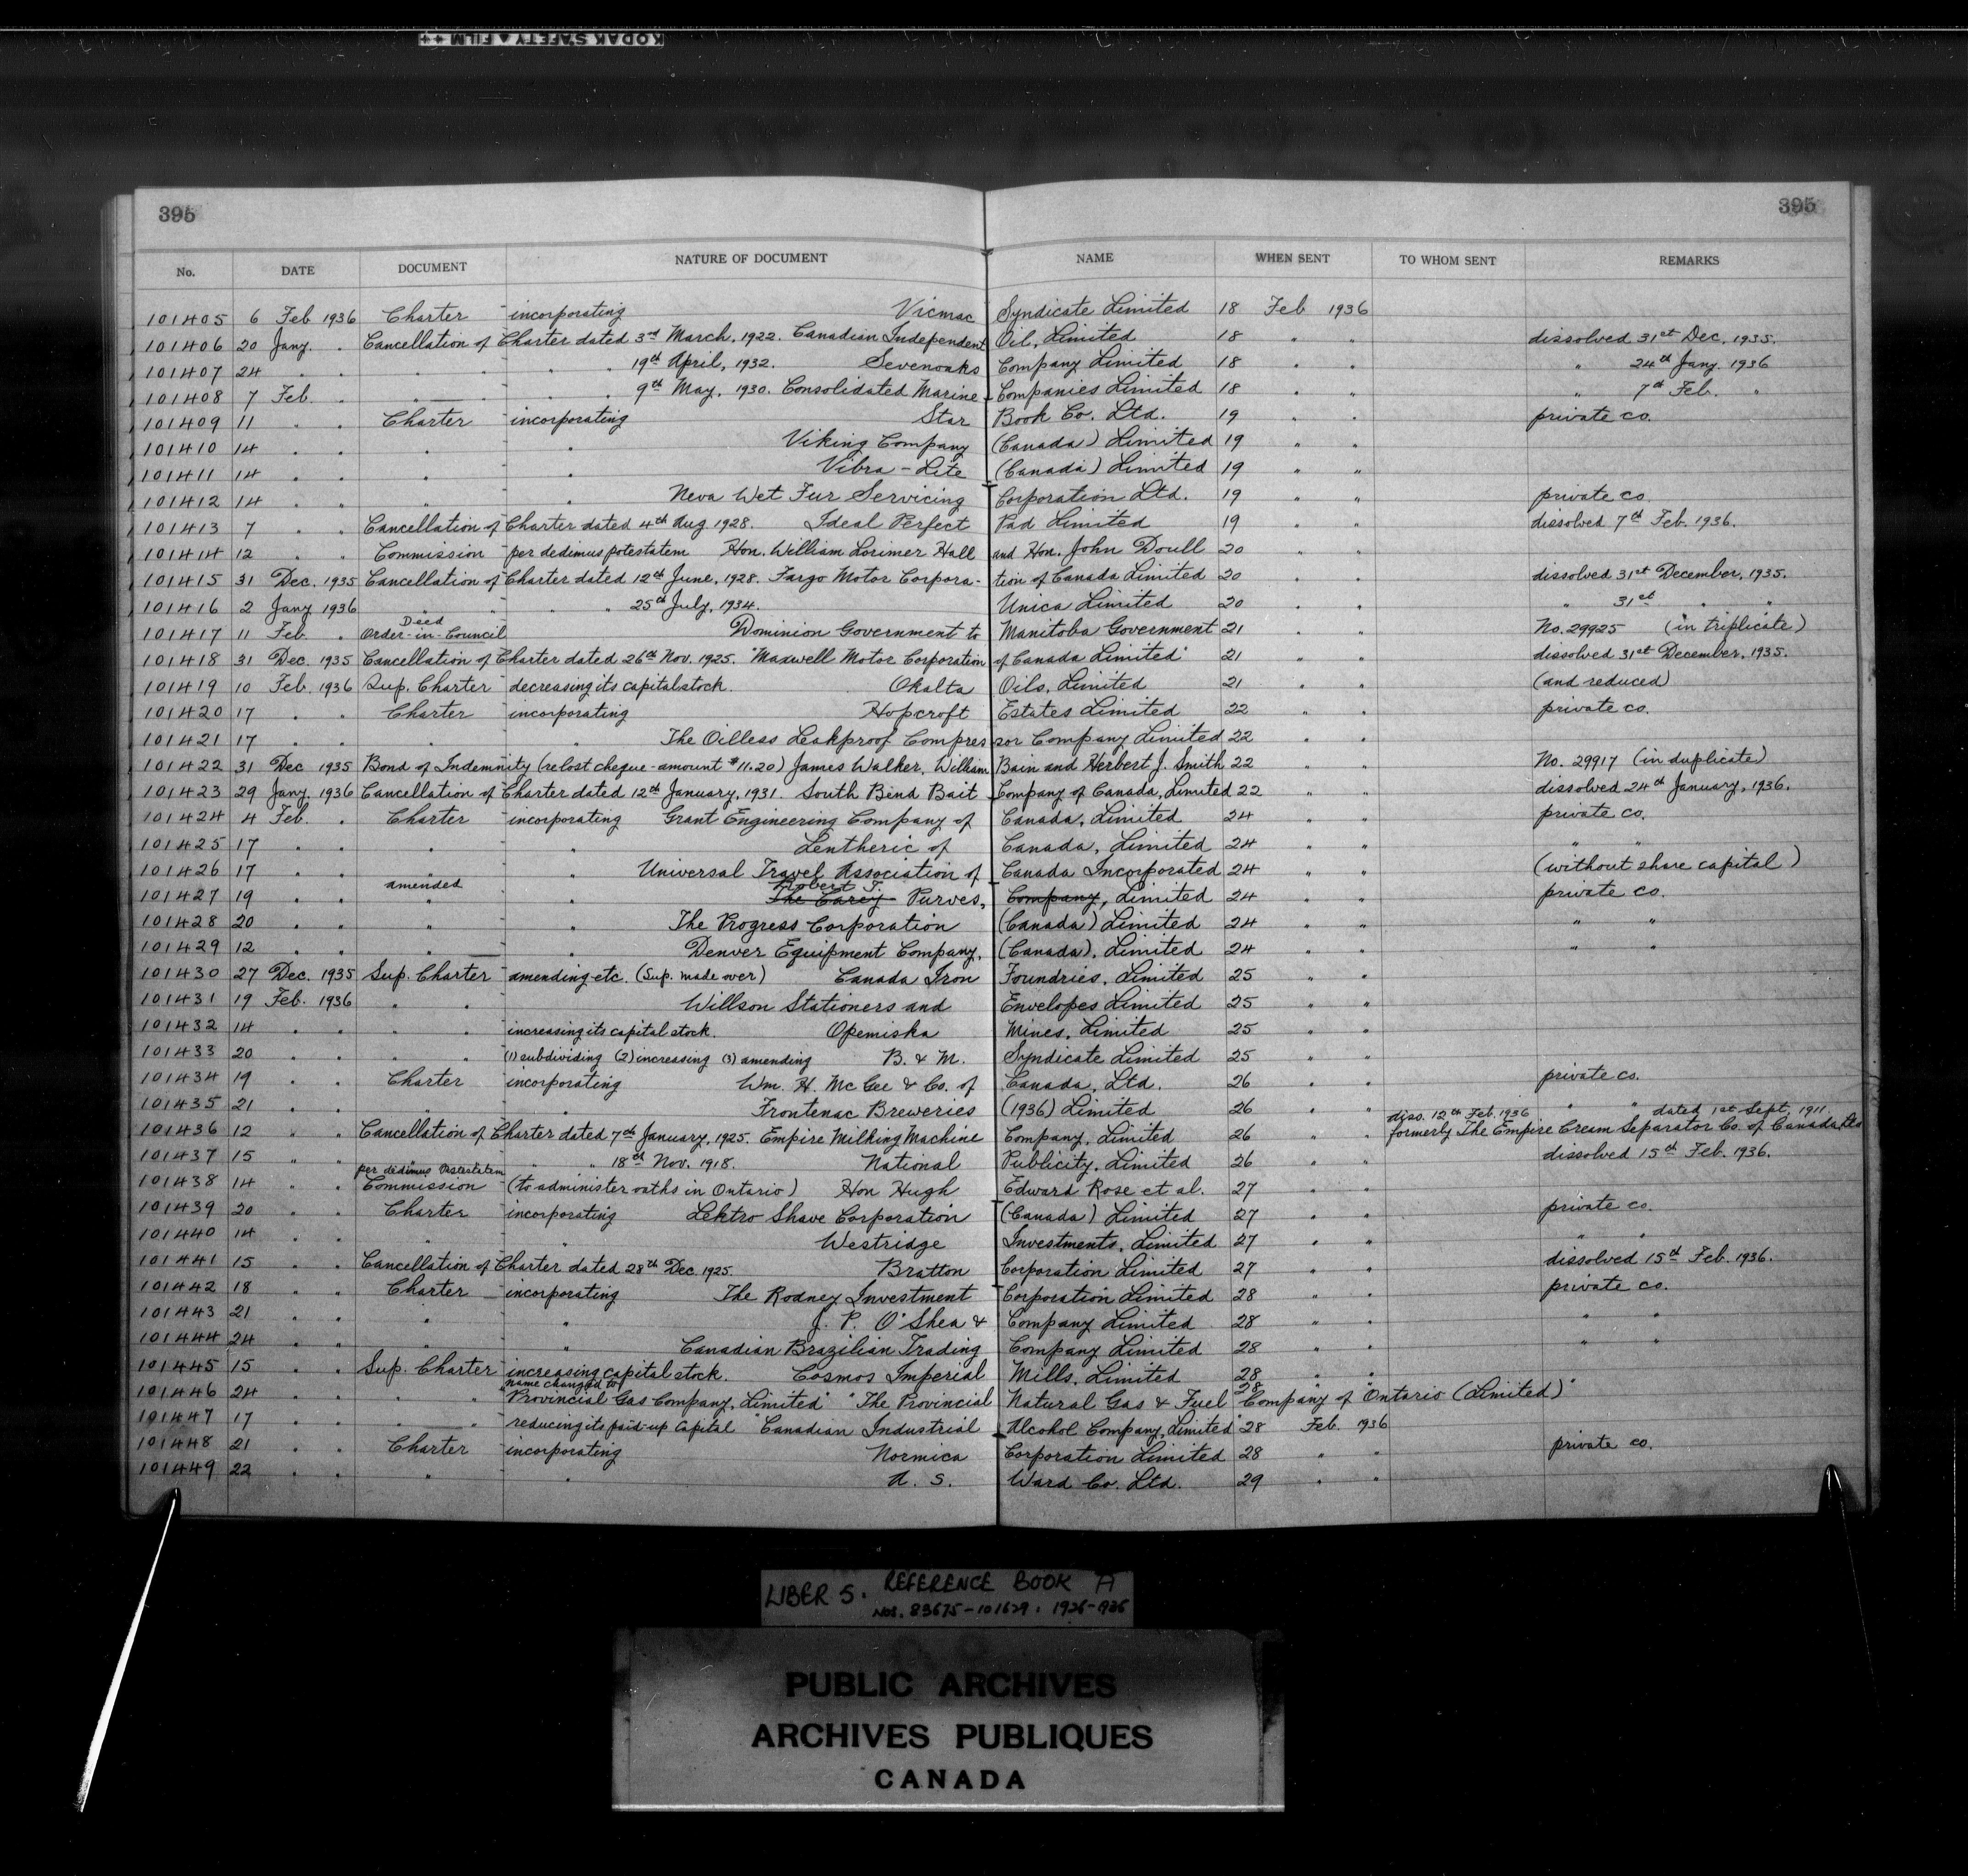 KODAK SAFETY FILM ++
395 395
No. DATE DOCUMENT NATURE OF DOCUMENT NAME WHEN SENT TO WHOM SENT REMARKS
101405 6 Feb 1936 Charter incorporating Vicmac Syndicate Limited 18 Feb 1936
101406 20 Jany. " Cancellation of Charter dated 3rd March, 1922. Canadian Independent Oil, Limited 18 " " dissolved 31st Dec. 1935.
101407 24 " " " " " 19th April, 1932. Sevenoaks Company Limited 18 " " " 24th Jany. 1936
101408 7 Feb. " " " " 9th May, 1930. Consolidated Marine Companies Limited 18 " " " 7th Feb. "
101409 11 " " Charter incorporating Star Book Co. Ltd. 19 " " private co.
101410 14 " " " " Viking Company (Canada) Limited 19 " "
101411 14 " " " " Vibra-Lite (Canada) Limited 19 " "
101412 14 " " " " Neva Wet Fur Servicing Corporation Ltd. 19 " " private co.
101413 7 " " Cancellation of Charter dated 4th Aug 1928. Ideal Perfect Pad Limited 19 " " dissolved 7th Feb. 1936.
101414 12 " " Commission per dedimus potestatem Hon. William Lorimer Hall and Hon. John Doull 20 " "
101415 31 Dec. 1935 Cancellation of Charter dated 12th June, 1928. Fargo Motor Corpora- tion of Canada Limited 20 " " dissolved 31st December, 1935.
101416 2 Jany 1936 " " " " 25th July, 1934. Unica Limited 20 " " " 31st " "
Deed
101417 11 Feb. " Order-in-Council Dominion Government to Manitoba Government 21 " " No. 29925 (in triplicate)
101418 31 Dec. 1935 Cancellation of Charter dated 26th Nov. 1925. "Maxwell Motor Corporation of Canada Limited" 21 " " dissolved 31st December, 1935.
101419 10 Feb. 1936 Sup. Charter decreasing its capital stock. Okalta Oils, Limited 21 " " (and reduced)
101420 17 " " Charter incorporating Hopcroft Estates Limited 22 " " private co.
101421 17 " " " " The Oilless Leakproof Compres sor Company Limited 22 " "
101422 31 Dec 1935 Bond of Indemnity (re lost cheque - amount $11.20) James Walker, William Bain and Herbert J. Smith 22 " " No. 29917 (in duplicate)
101423 29 Jany. 1936 Cancellation of Charter dated 12th January, 1931. South Bend Bait Company of Canada, Limited 22 " " dissolved 24th January, 1936.
101424 4 Feb. " Charter incorporating Grant Engineering Company of Canada, Limited 24 " " private co.
101425 17 " " " " Lentheric of Canada, Limited 24 " " " "
101426 17 " " " " Universal Travel Association of Canada Incorporated 24 " " (without share capital)
amended Robert T.
101427 19 " " " " The Carey Purves, Company, Limited 24 " " private co.
101428 20 " " " " The Progress Corporation (Canada) Limited 24 " " " "
101429 12 " " " " Denver Equipment Company, (Canada), Limited 24 " " " "
101430 27 Dec. 1935 Sup. Charter amending etc. (Sup. made over) Canada Iron Foundries, Limited 25 " "
101431 19 Feb. 1936 " " Willson Stationers and Envelopes Limited 25 " "
101432 14 " " " " increasing its capital stock. Opemiska Mines, Limited 25 " "
101433 20 " " " " (1) subdividing (2) increasing (3) amending B. & M. Syndicate Limited 25 " "
101434 19 " " Charter incorporating Wm. H. McGee & Co. of Canada, Ltd. 26 " " private co.
101435 21 " " " " Frontenac Breweries (1936) Limited 26 " " " "
diss. 12th Feb. 1936 dated 1st Sept. 1911.
101436 12 " " Cancellation of Charter dated 7th January, 1925. Empire Milking Machine Company, Limited 26 " " formerly The Empire Cream Separator Co. of Canada Ltd
101437 15 " " " " 18th Nov. 1918. National Publicity, Limited 26 " " dissolved 15th Feb. 1936.
per dedimus Potestatem
101438 14 " " Commission (to administer oaths in Ontario) Hon Hugh Edward Rose et al. 27 " "
101439 20 " " Charter incorporating Lektro Shave Corporation (Canada) Limited 27 " " private co.
101440 14 " " " " Westridge Investments, Limited 27 " " " "
101441 15 " " Cancellation of Charter dated 28th Dec. 1925. Bratton Corporation Limited 27 " " dissolved 15th Feb. 1936.
101442 18 " " Charter incorporating The Rodney Investment Corporation Limited 28 " " private co.
101443 21 " " " " J. P. O'Shea & Company Limited 28 " " " "
101444 24 " " " " Canadian Brazilian Trading Company Limited 28 " " " "
101445 15 " " Sup. Charter increasing capital stock. Cosmos Imperial Mills, Limited 28 " "
name changed to
101446 24 " " " " "Provincial Gas Company, Limited" "The Provincial Natural Gas & Fuel 28 Company of Ontario (Limited)"
101447 17 " " " reducing its paid-up capital "Canadian Industrial Alcohol Company, Limited" 28 Feb. 1936
101448 21 " " Charter incorporating Normica Corporation Limited 28 " " private co.
101449 22 " " " " A. S. Ward Co. Ltd. 29 " "
LIBER 5. REFERENCE BOOK A
NOS. 83675-101629. 1926-1936
PUBLIC ARCHIVES
ARCHIVES PUBLIQUES
CANADA